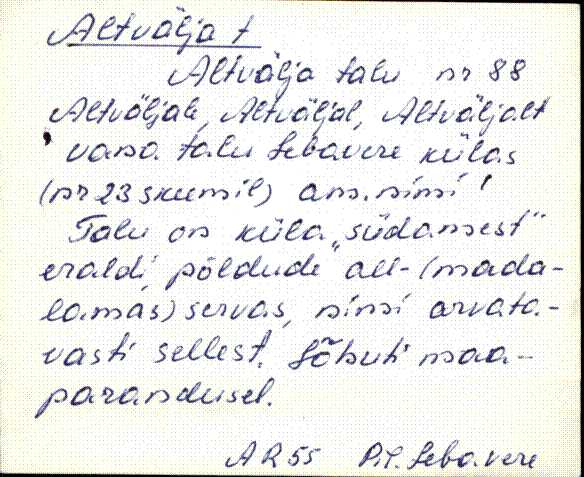 Altvälja t
Altvälja talu nr 88
Altväljale, Altväljal, Altväljalt
vana talu Sebavere külas
(nr 23 skeemil) am. nimi!
Talu on küla „südamest"
eraldi, põldude all- (mada-
lamas) servas, nimi arvata-
vasti sellest. Lõhuti maa-
parandusel.
AR 55 Pil. Sebavere